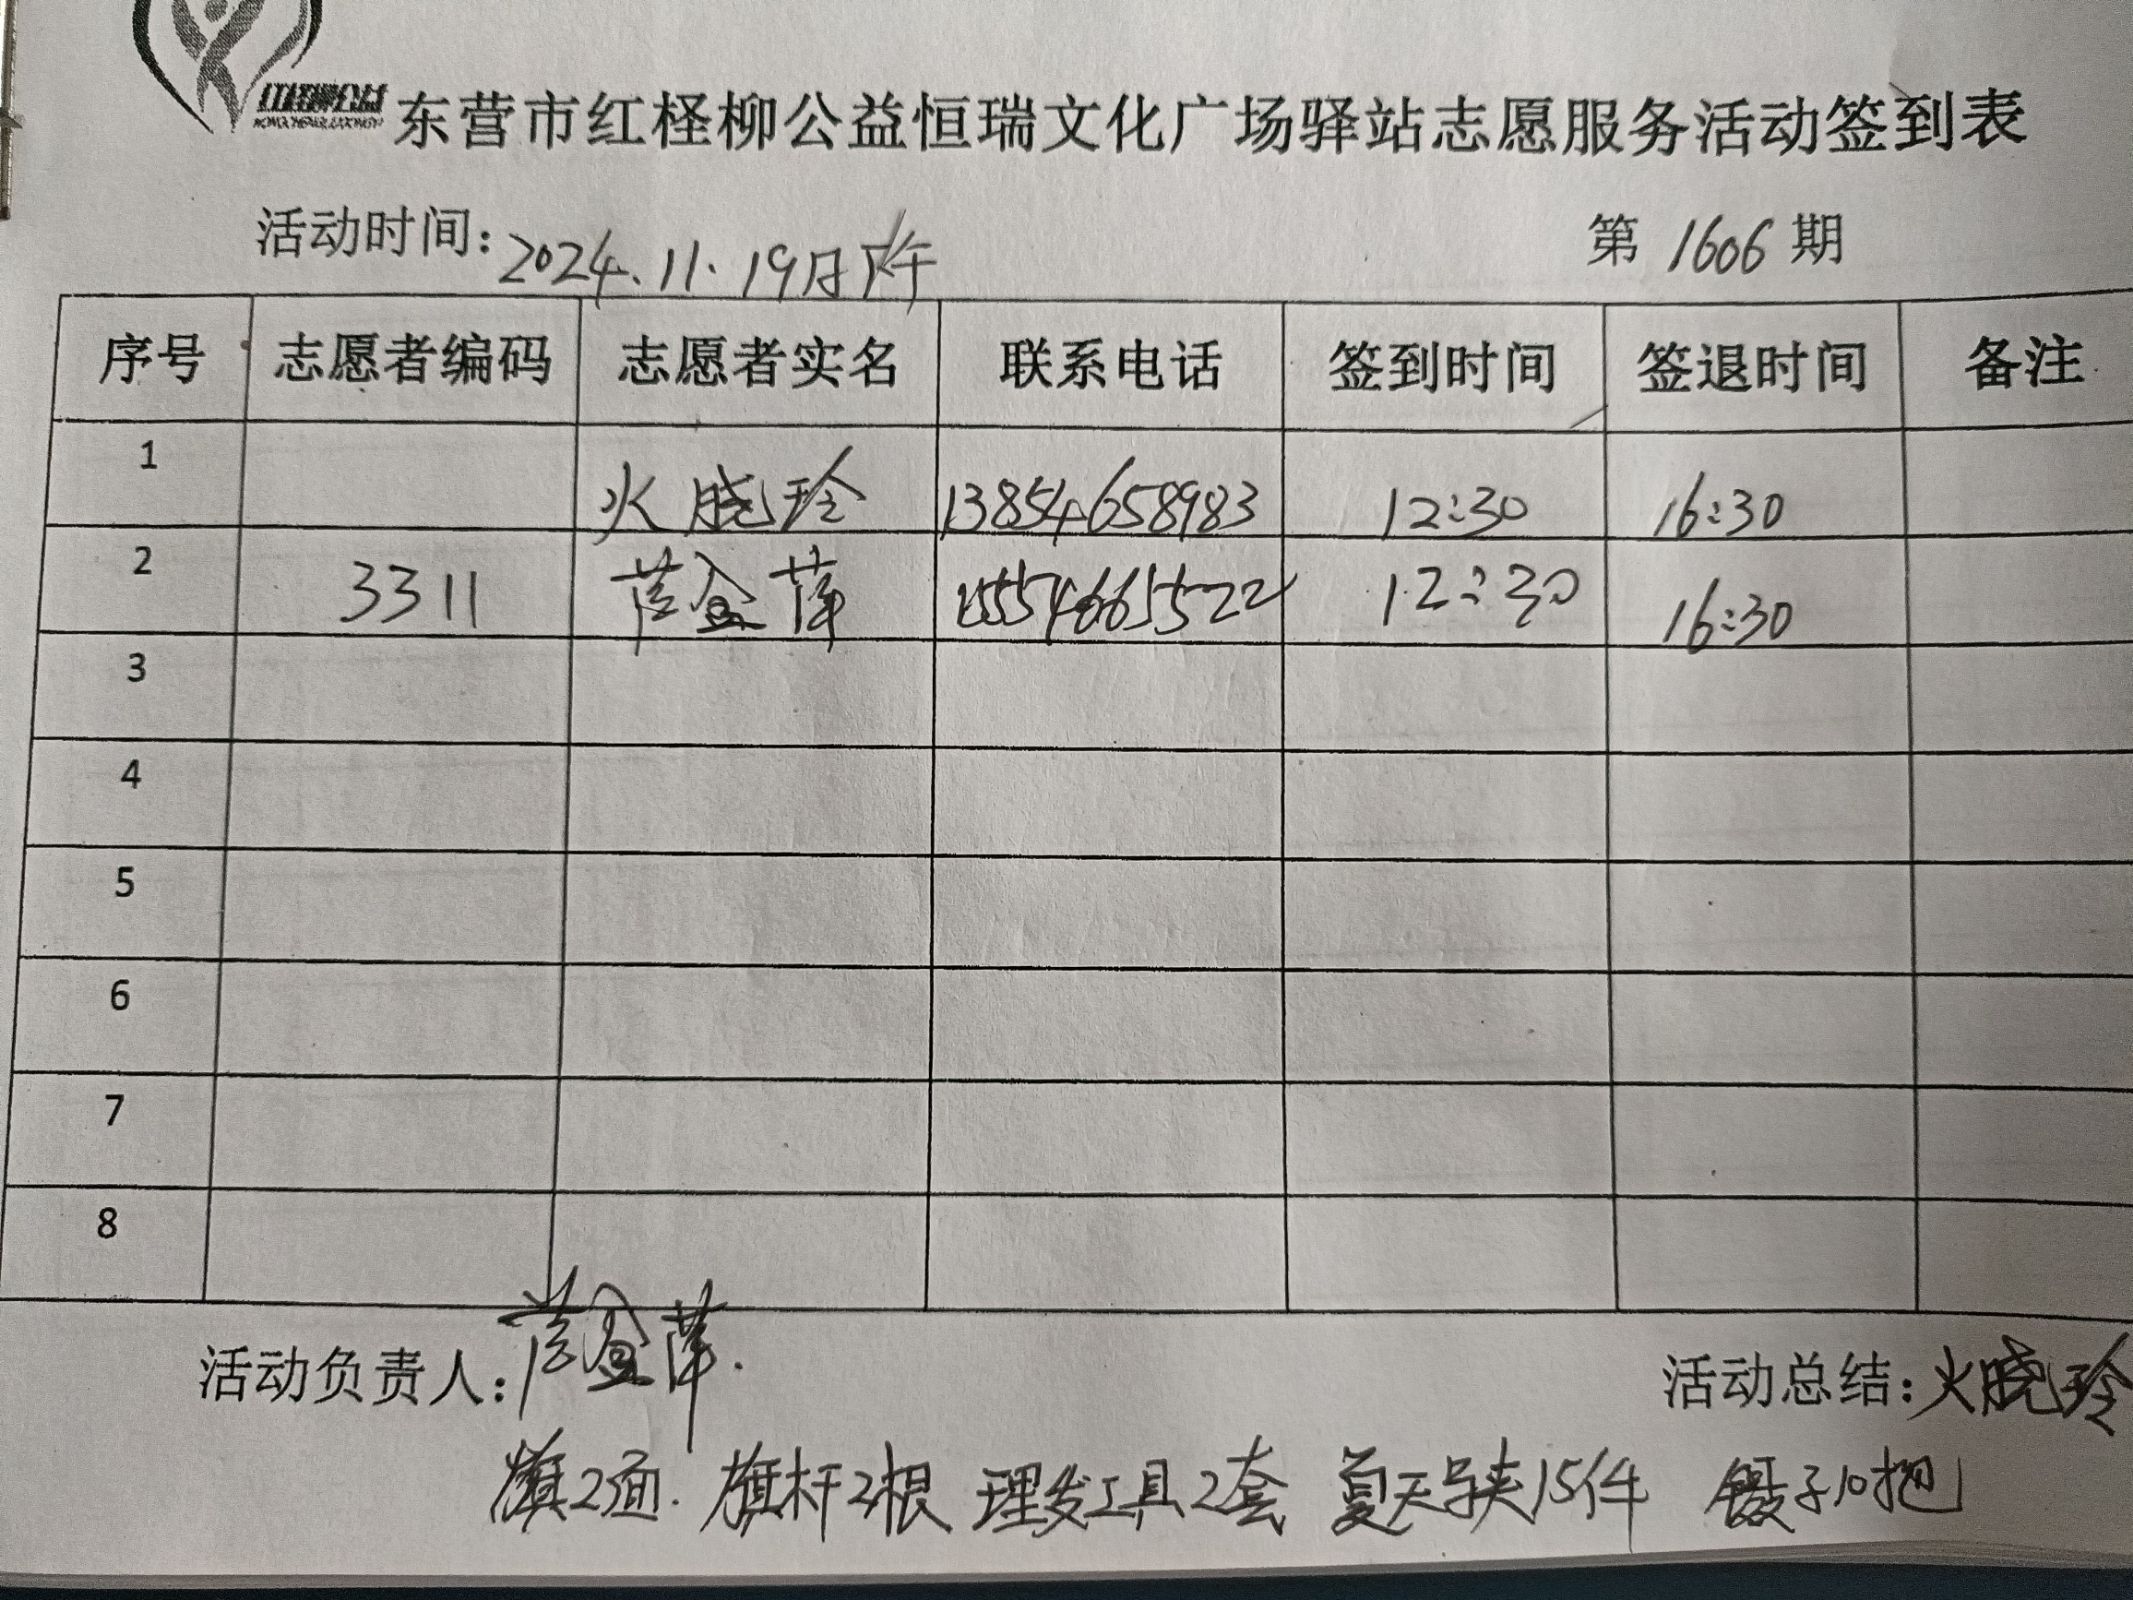 红柽柳公益
东营市红柽柳公益恒瑞文化广场驿站志愿服务活动签到表
活动时间：2024.11.19日下午 第 1606 期
序号 志愿者编码 志愿者实名 联系电话 签到时间 签退时间 备注
1 火晓玲 13854658983 12:30 16:30
2 3311 金萍 15554665522 12:30 16:30
3
4
5
6
7
8
活动负责人：金萍. 活动总结：火晓玲
旗2面. 旗杆2根 理发工具2套 夏天马夹15件 镊子10把